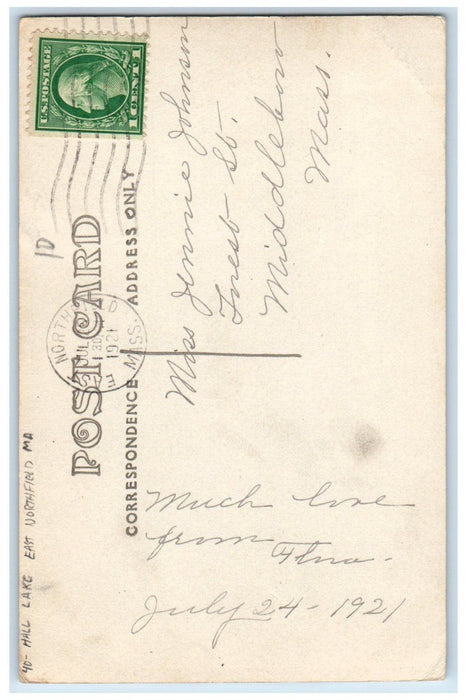 U.S. POSTAGE
1 CENT 1
POST CARD
CORRESPONDENCE
ADDRESS ONLY
10
NORTHFIELD
JUL
30
1921
MASS.
E
Miss Jennie Johnson
Forest St.
Middleboro
Mass.
Much love
from
July 24 - 1921
40- HALL LAKE EAST NORTHFIELD MA